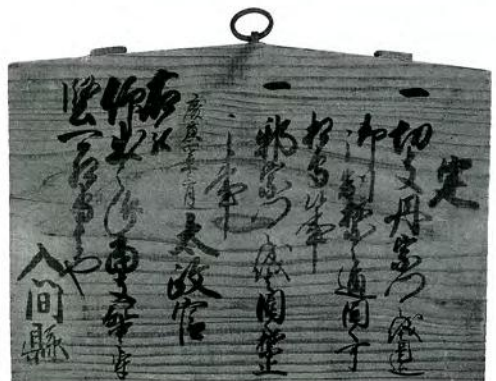 定
一 切支丹宗門之儀是迄
御制禁之通固ク可
相守事
一 邪宗門之儀固ク禁止
之事
慶應四年三月 太政官
右被
仰出之
堅可相守也
入間縣